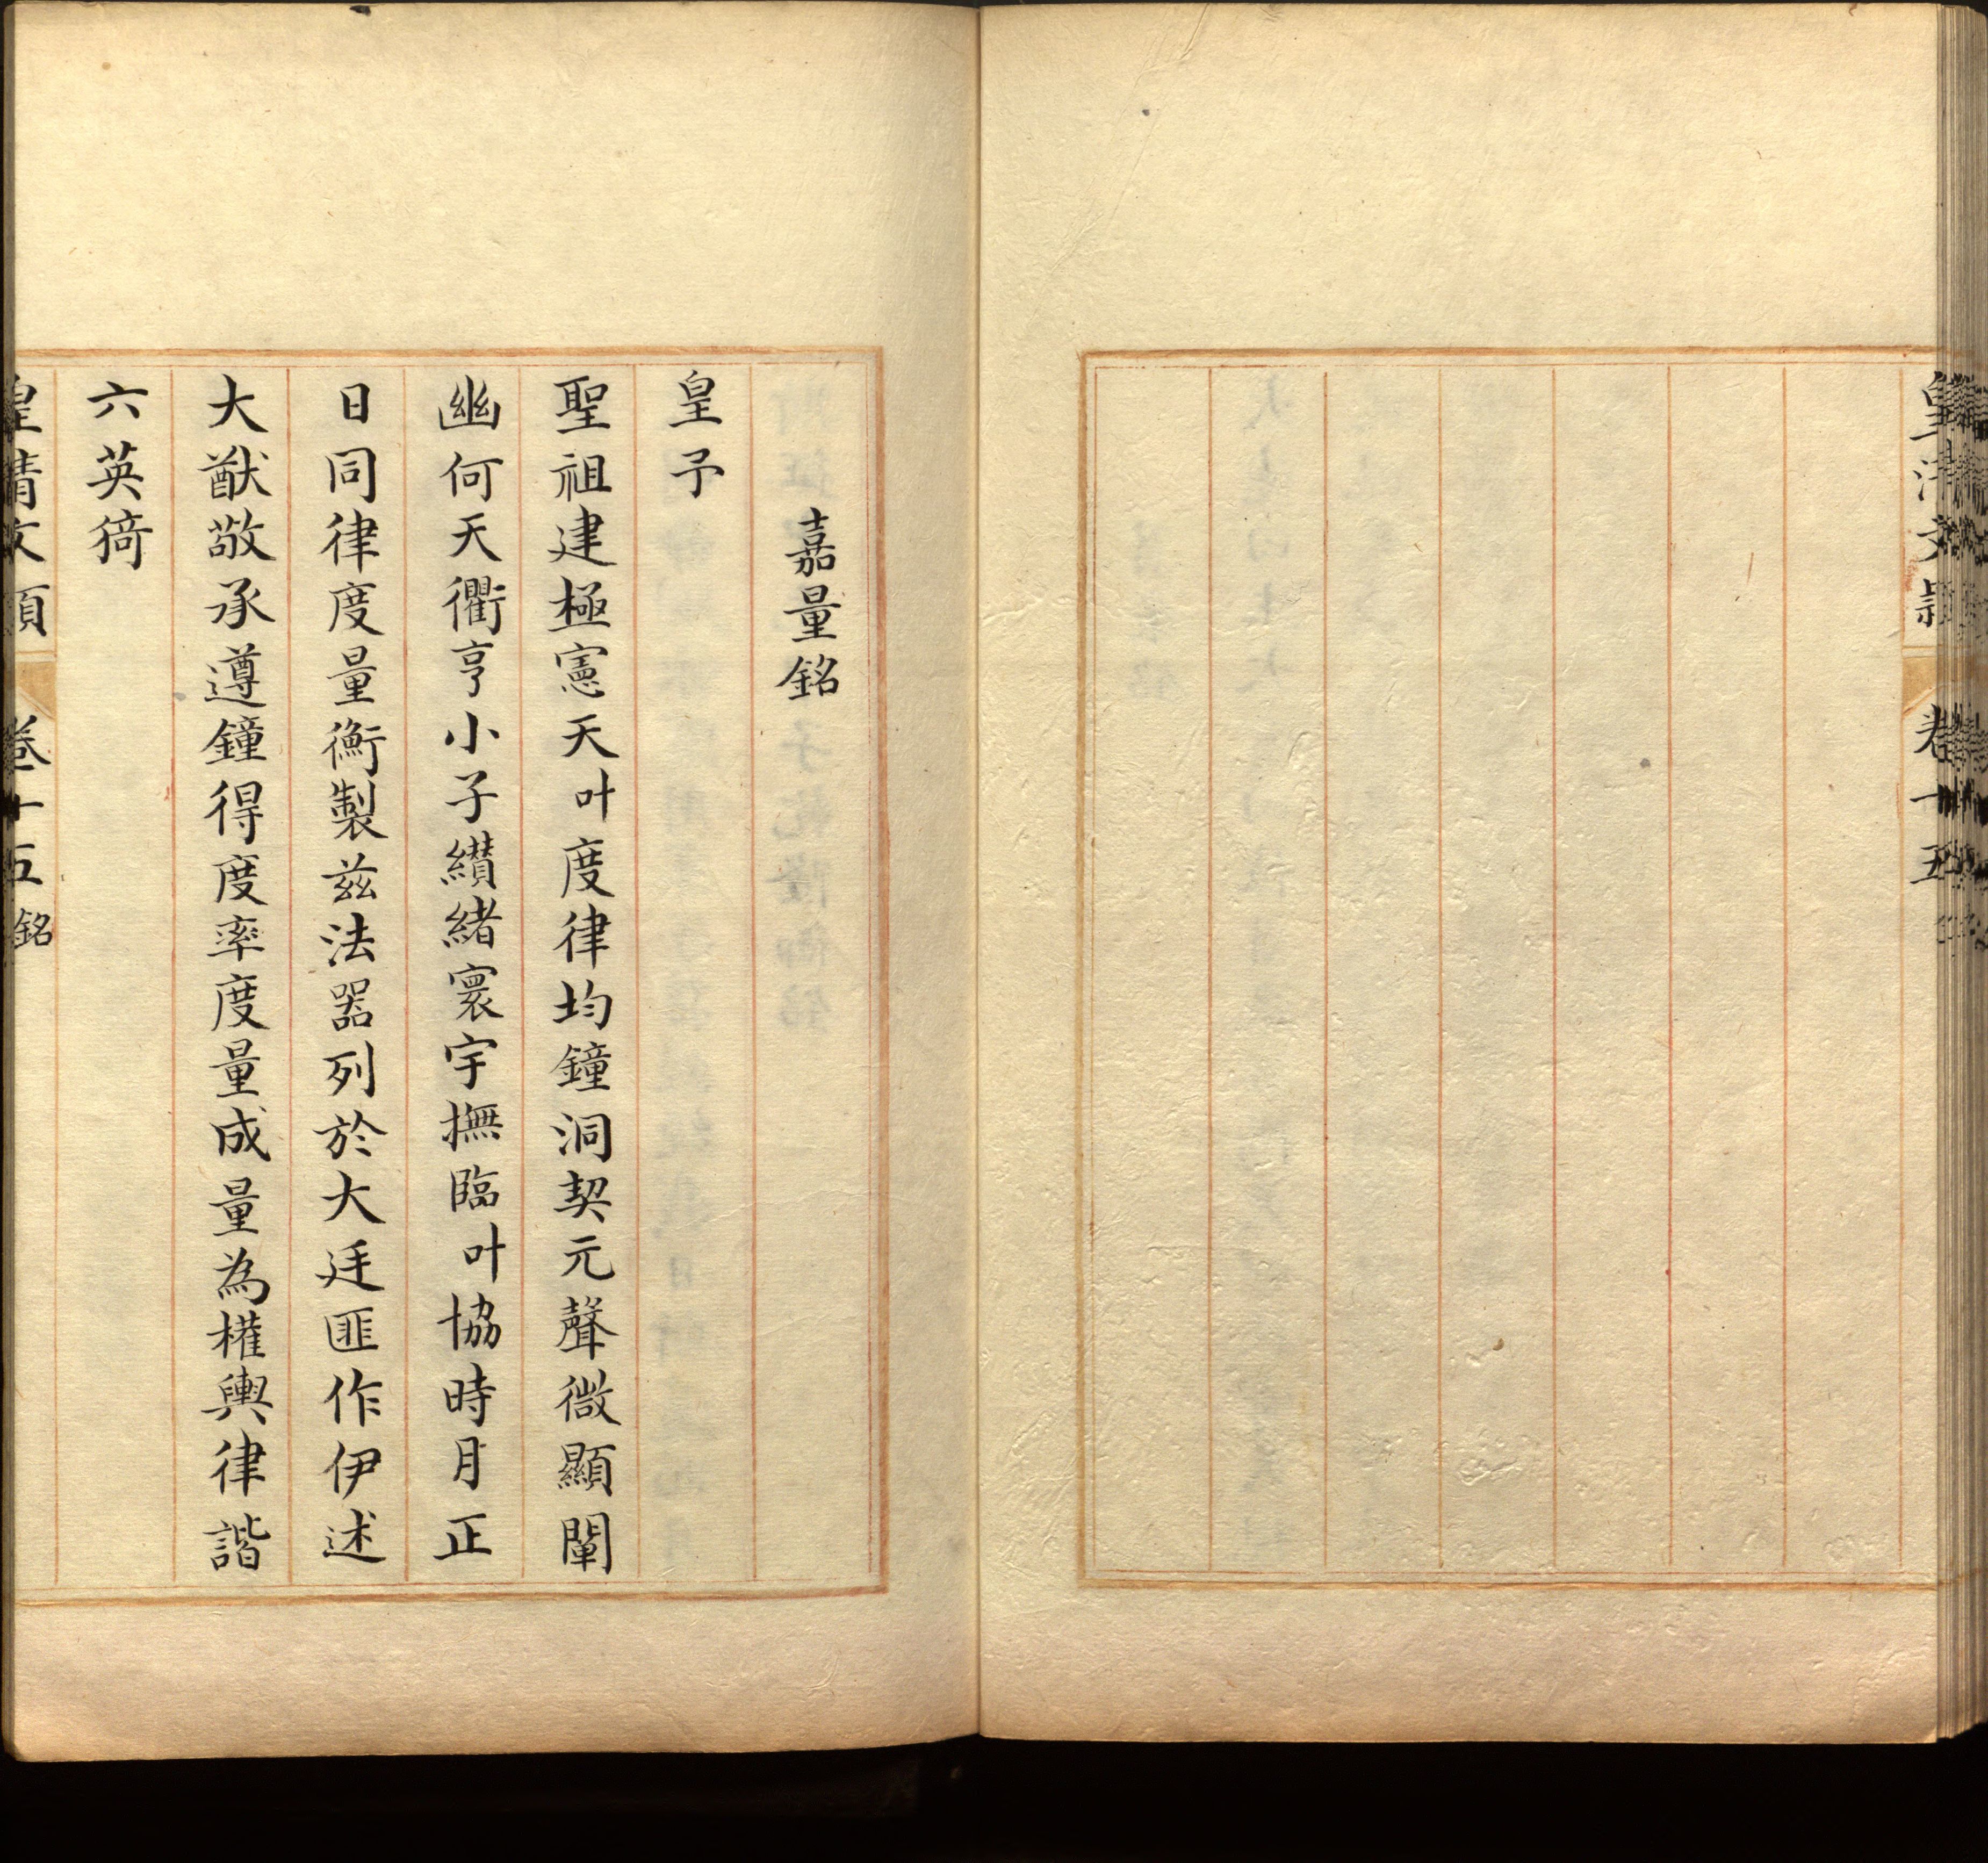 皇清文穎
卷十五
嘉量銘
皇予
聖祖建極憲天叶度律均鐘洞契元聲微顯闡
幽何天衢亨小子纘緒寰宇撫臨叶協時月正
日同律度量衡製茲法器列於大廷匪作伊述
大猷敬承遵鐘得度率度量成量為權輿律諧
六英猗
皇清文穎
卷十五
銘